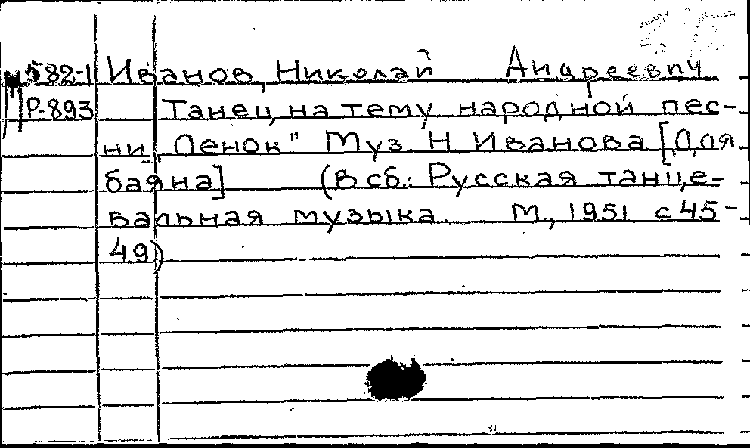 М582-1 Иванов, Николай Андреевич
Р-893 Танец на тему народной пес-
ни „Ленок" Муз Н Иванова [Для
баяна] (В сб.: Русская танце-
вальная музыка. М., 1951 с 45-
49)